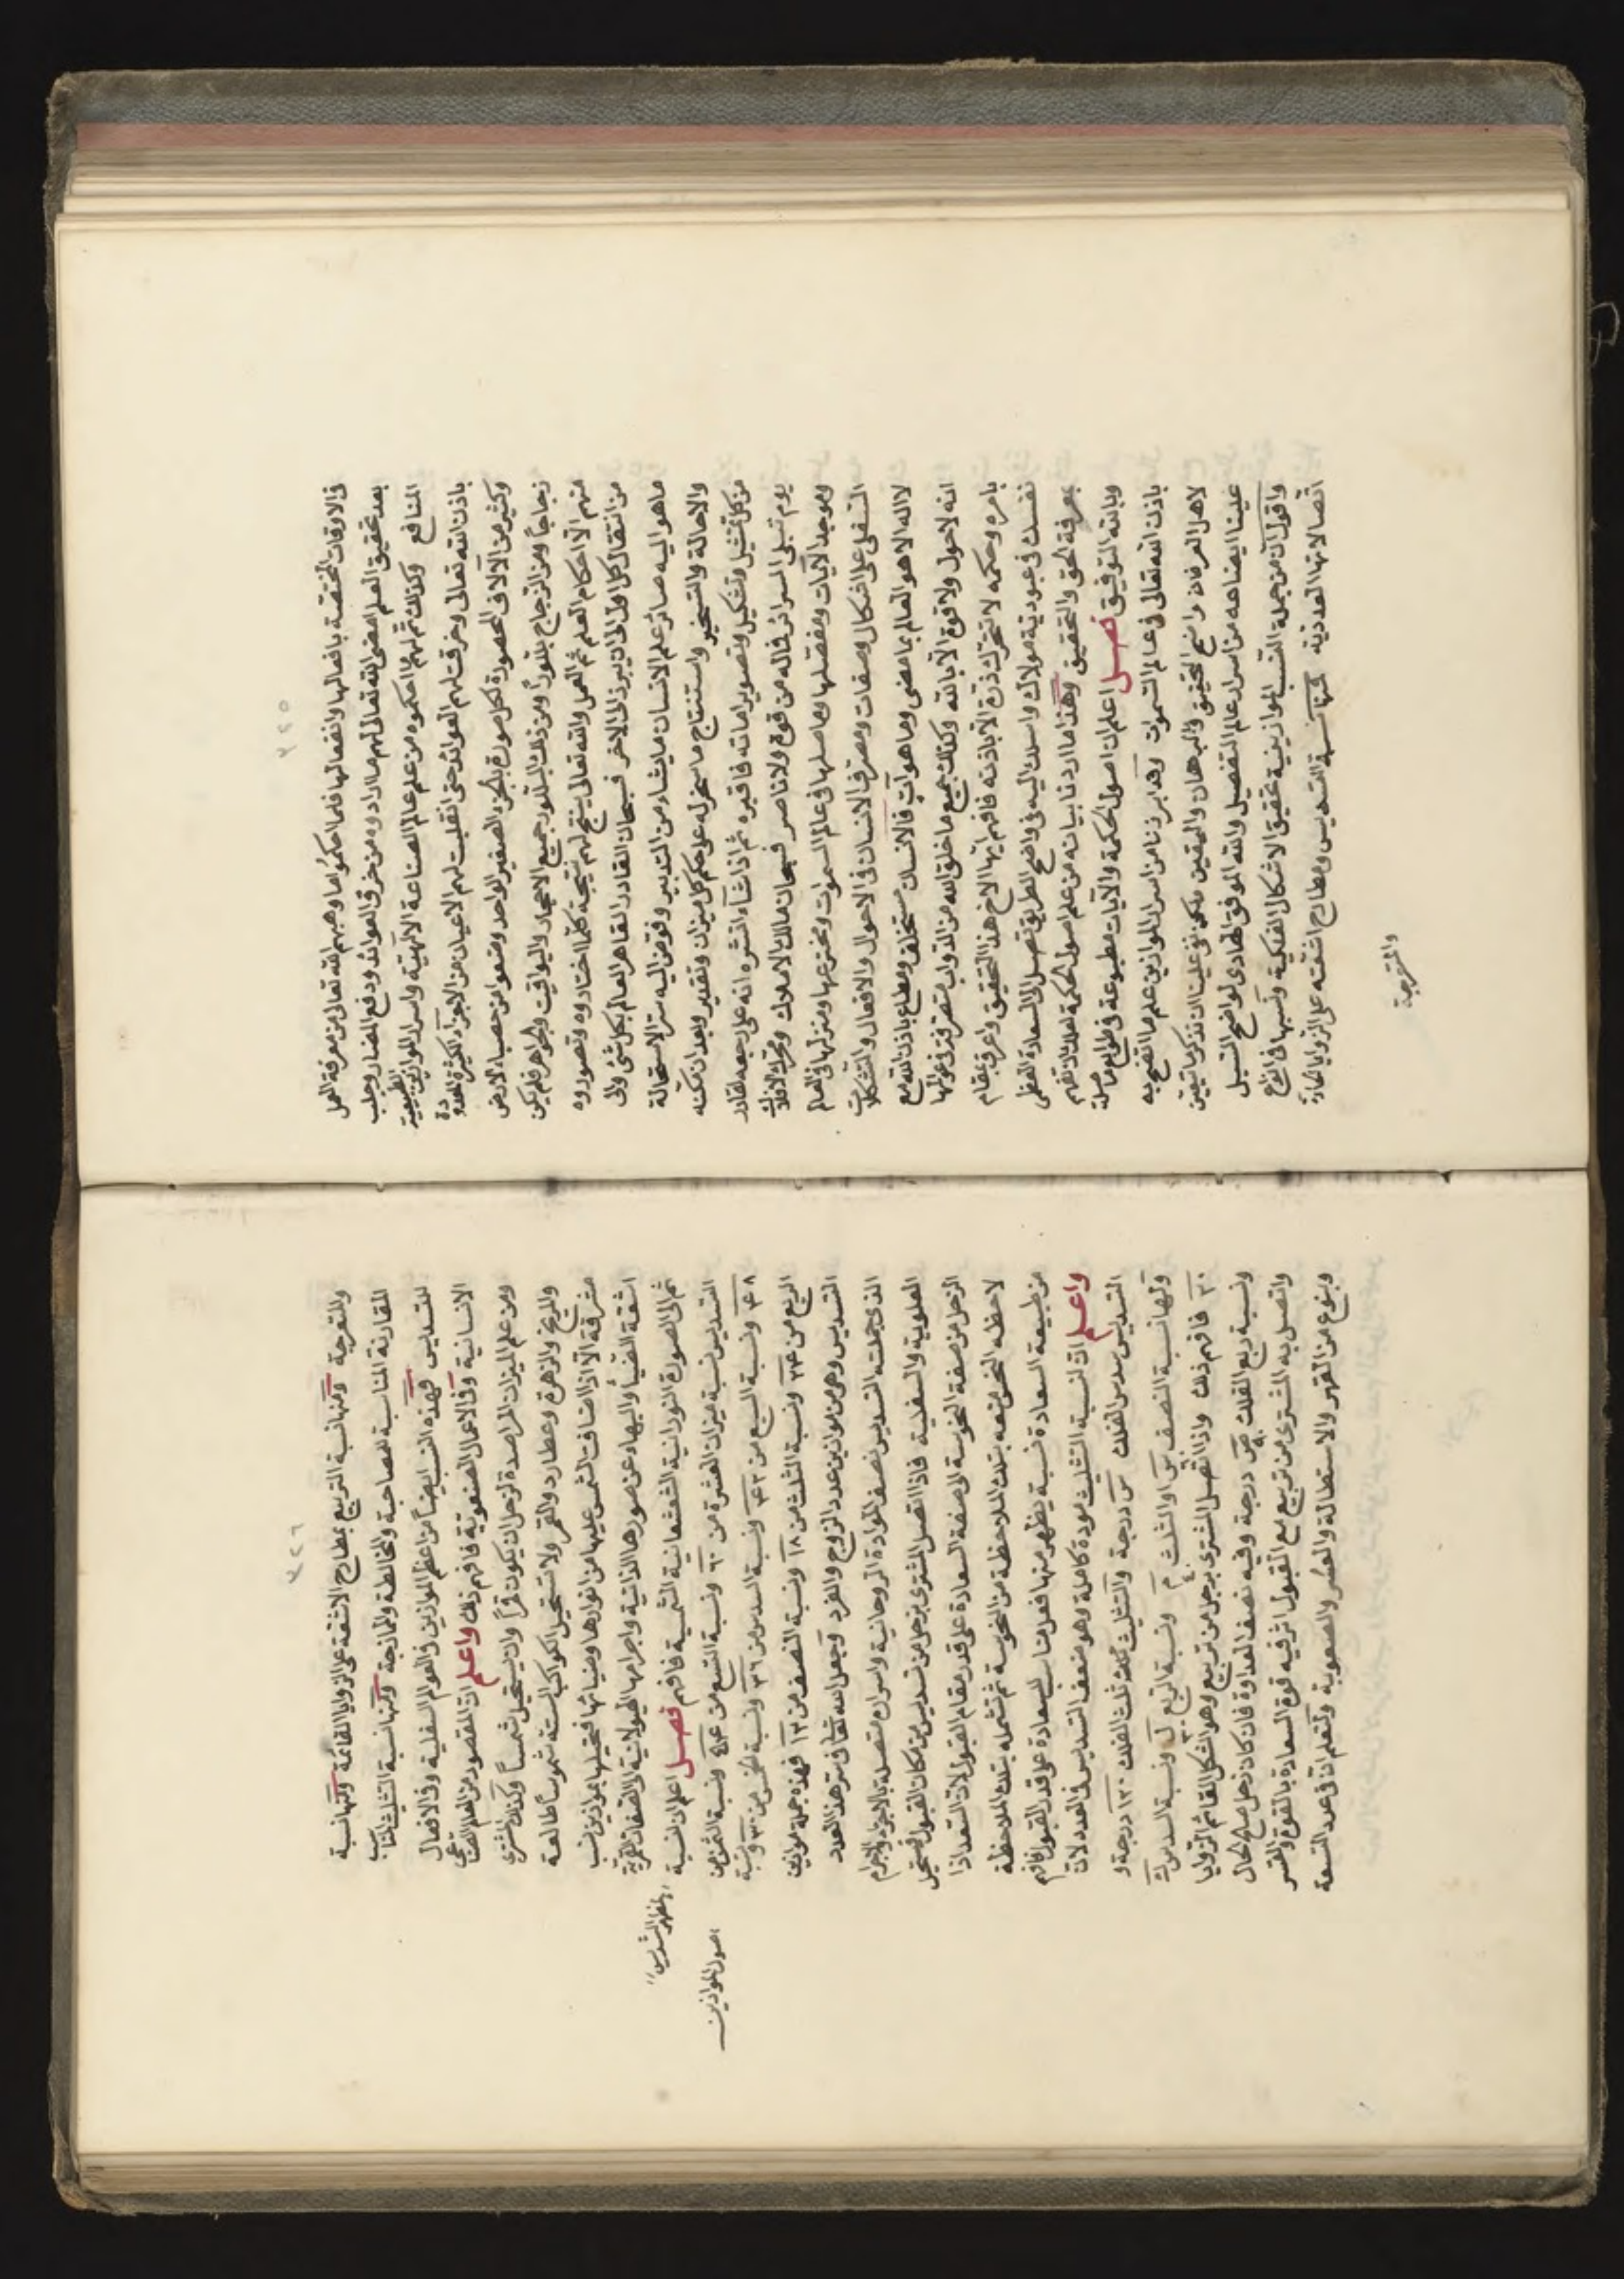 ٣٢٥
فى الاوقات المختصة بافعالها وانفعالها فلما احكموا ما وهبهم الله تعالى من معرفة العمل
بعد تحقيق العلم امضى الله تعالى لهم ما ارادوه من خرق العوائد ودفع المضار وجلب
المنافع وكذلك ثم لهم ما احكموه من علم عالم الصناعة الالهية واسرار الموازين الطبيعية
باذن الله تعالى وخرقت لهم العوائد حتى انقلبت لهم الاعيان من الاجزاء الكثيرة المعدودة
وكثير من الآلاف المحصورة لكل صورة بالجزء الصغير الواحد وصنعوا من حصباء الارض
زجاجاً ومن الزجاج بلوراً ومن ذلك البلور جميع الاحجار واليواقيت والجواهر فلم يكن
منهم الا احكام العلم ثم العمل والله تعالى ينتج لهم نتيجة كلما اختاروه وتصوروه
من انتقال كل اول الى ان يبرز الى الاخر فسبحان القادر القاهر العالم بكل شئ والى
ما هو اليه صائر علم الانسان ما يشاء من التدبير وفوض اليه ستر الاستحالة
والاحالة والتسخير واستنتاج ما سخر له على حكم كل ميزان وتقدير وبعد ان مكنه
من كل تمثيل وتشكيل وتصوير اماته فاقبره ثم اذا شاء انشره انه على رجعه لقادر
يوم تبلى السرائر فماله من قوة ولا ناصر فسبحان مالك الاملاك ومحرك الافلاك
وموجد الآيات ومفصلها وصاصلها فى عالم السموات ومخترعها ومنزلها فى العالم
السفلى على اشكال وصفات ومصرف الانسان فى الاحوال والافعال والتشكلات
لا اله الا هو العالم بما مضى وما هو آت فالانسان مستخلف ومطاع باذن الله مع
انه لا حول ولا قوة الا بالله وكذلك جميع ما خلق الله من الذوات متصرفة فى عوالمها
بامره وحكمه لا تتحرك ذرة الا باذنه فافهم ايها الاخ هذا التحقيق واعرف مقام
نفسك فى عبودية مولاك واسلك اليه فى واضح الطريق تصل الى السعادة العظمى
بمعرفة الحق والتحقيق وهذا ما اردنا بيانه من علم اصول الحكمة لعلك تفهم
وبالله التوفيق فصل اعلم ان اصول الحكمة والآيات مطبوعة فى طوالع ماصلة
باذن الله تعالى فى عالم السموات وقد ابرزنا من اسرار الموازين علم ما اتضح به
لاهل العرفان واضح التحقيق والبرهان واليقين ولكن بقى علينا ان نذكر ما تعين
علينا ايضاحه من اسرار عالم التفصيل والله الموفق الهادى لواضح السبيل
واقول ان من جملة النسب الموازينية تحقيق الاشكال الفلكية ونسبها فى انواع
اتصالاتها العددية فمنها نسبة التسديس ومطارح اشعته على الزوايا الحادة
والمنفرجة
٣٢٦
والمنفرجة ومنها نسبة التربيع بمطارح الاشعة على الزوايا القائمة ومنها نسبة
المقارنة المناسبة للمصاحبة والمخالطة والممازجة ومنها نسبة التثليث المناسب
للتسديس فهذه النسب ايضاً من اعظم الموازين فى العوالم السفلية وفى الافعال
الانسانية وفى الاعمال الصنعوية فافهم ذلك واعلم ان المقصود من العلم الصناعى
ومن علم الميزان المراصدة لزحل ان يكون قمراً وان يستحيل شمساً وكذلك المشترى
والمريخ والزهرة وعطارد والقمر ولا تستحيل الكواكب الستة شموساً طالعة
مشرقة الا اذا اضافت الشمس عليها من انوارها وضيائها فتحيلها بموازين نسب
اشعة الضياء والبهاء عن صورها الذاتية واجرامها الهيولانية الى الصفات القمرية
ثم الى الصورة النورانية الشعشعانية الشمسية فافهم فصل اعلم ان نسبة
التسديس نسبة ميزان العشرة من ٦٠ ونسبة التسع من ٥٤ ونسبة الثمن من
٤٨ ونسبة السبع من ٤٢ ونسبة السدس من ٣٦ ونسبة الخمس من ٣٠ ونسبة
الربع من ٢٤ ونسبة الثلث من ١٨ ونسبة النصف من ١٢ فهذه جملة موازين
التسديس وهى من موازين عدد الزوج والفرد وجعل الله تعالى سر هذا العدد
الذى جملته التسديس نصف المودة الروحانية واسراره متصلة بالاجرام والاجرام
العلوية والسفلية فاذا اتصل المشترى بزحل من تسديس من مكان القبول يستحيل
الزحل من صفة النحوسة الى صفة السعادة على قدر مقام القبول لان السعد اذا
لاحظه النحس منعه بتلك الملاحظة من النحوسة ثم تشمله بتلك الملاحظة
من طبيعة السعادة نسبة يظهر منها فعل مناسب للسعادة على قدر القبول فافهم
واعلم ان لنسبة التثليث مودة كاملة وهو ضعف التسديس فى العدد لان
التسديس سدس الفلك س درجة والتثليث ثلث الفلك ١٢٠ درجة و
ولها نسبة النصف س والثلث م ونسبة الربع ل ونسبة السدس ك
٢٠ فافهم ذلك واذا اتصل المشترى بزحل من تربيع وهو الشكل القائم الزوايا
ونسبة ربع الفلك ص درجة وفيه نصف العداوة فان كان زحل صالح الحال
واتصل به المشترى من تربيع مع القبول اثر فيه قوة السعادة بالقوة والقسر
وبنوع من القهر والاستطالة والعسر والصعوبة ولتعلم ان فى عدد التسعة
"لمظهر التسديس"
اصول الموازين